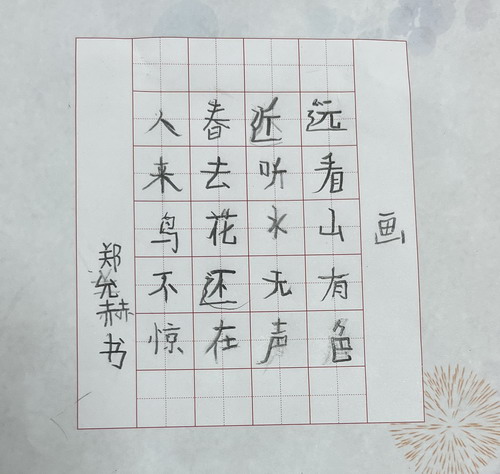 画
远看山有色
近听水无声
春去花还在
人来鸟不惊
郑允赫书